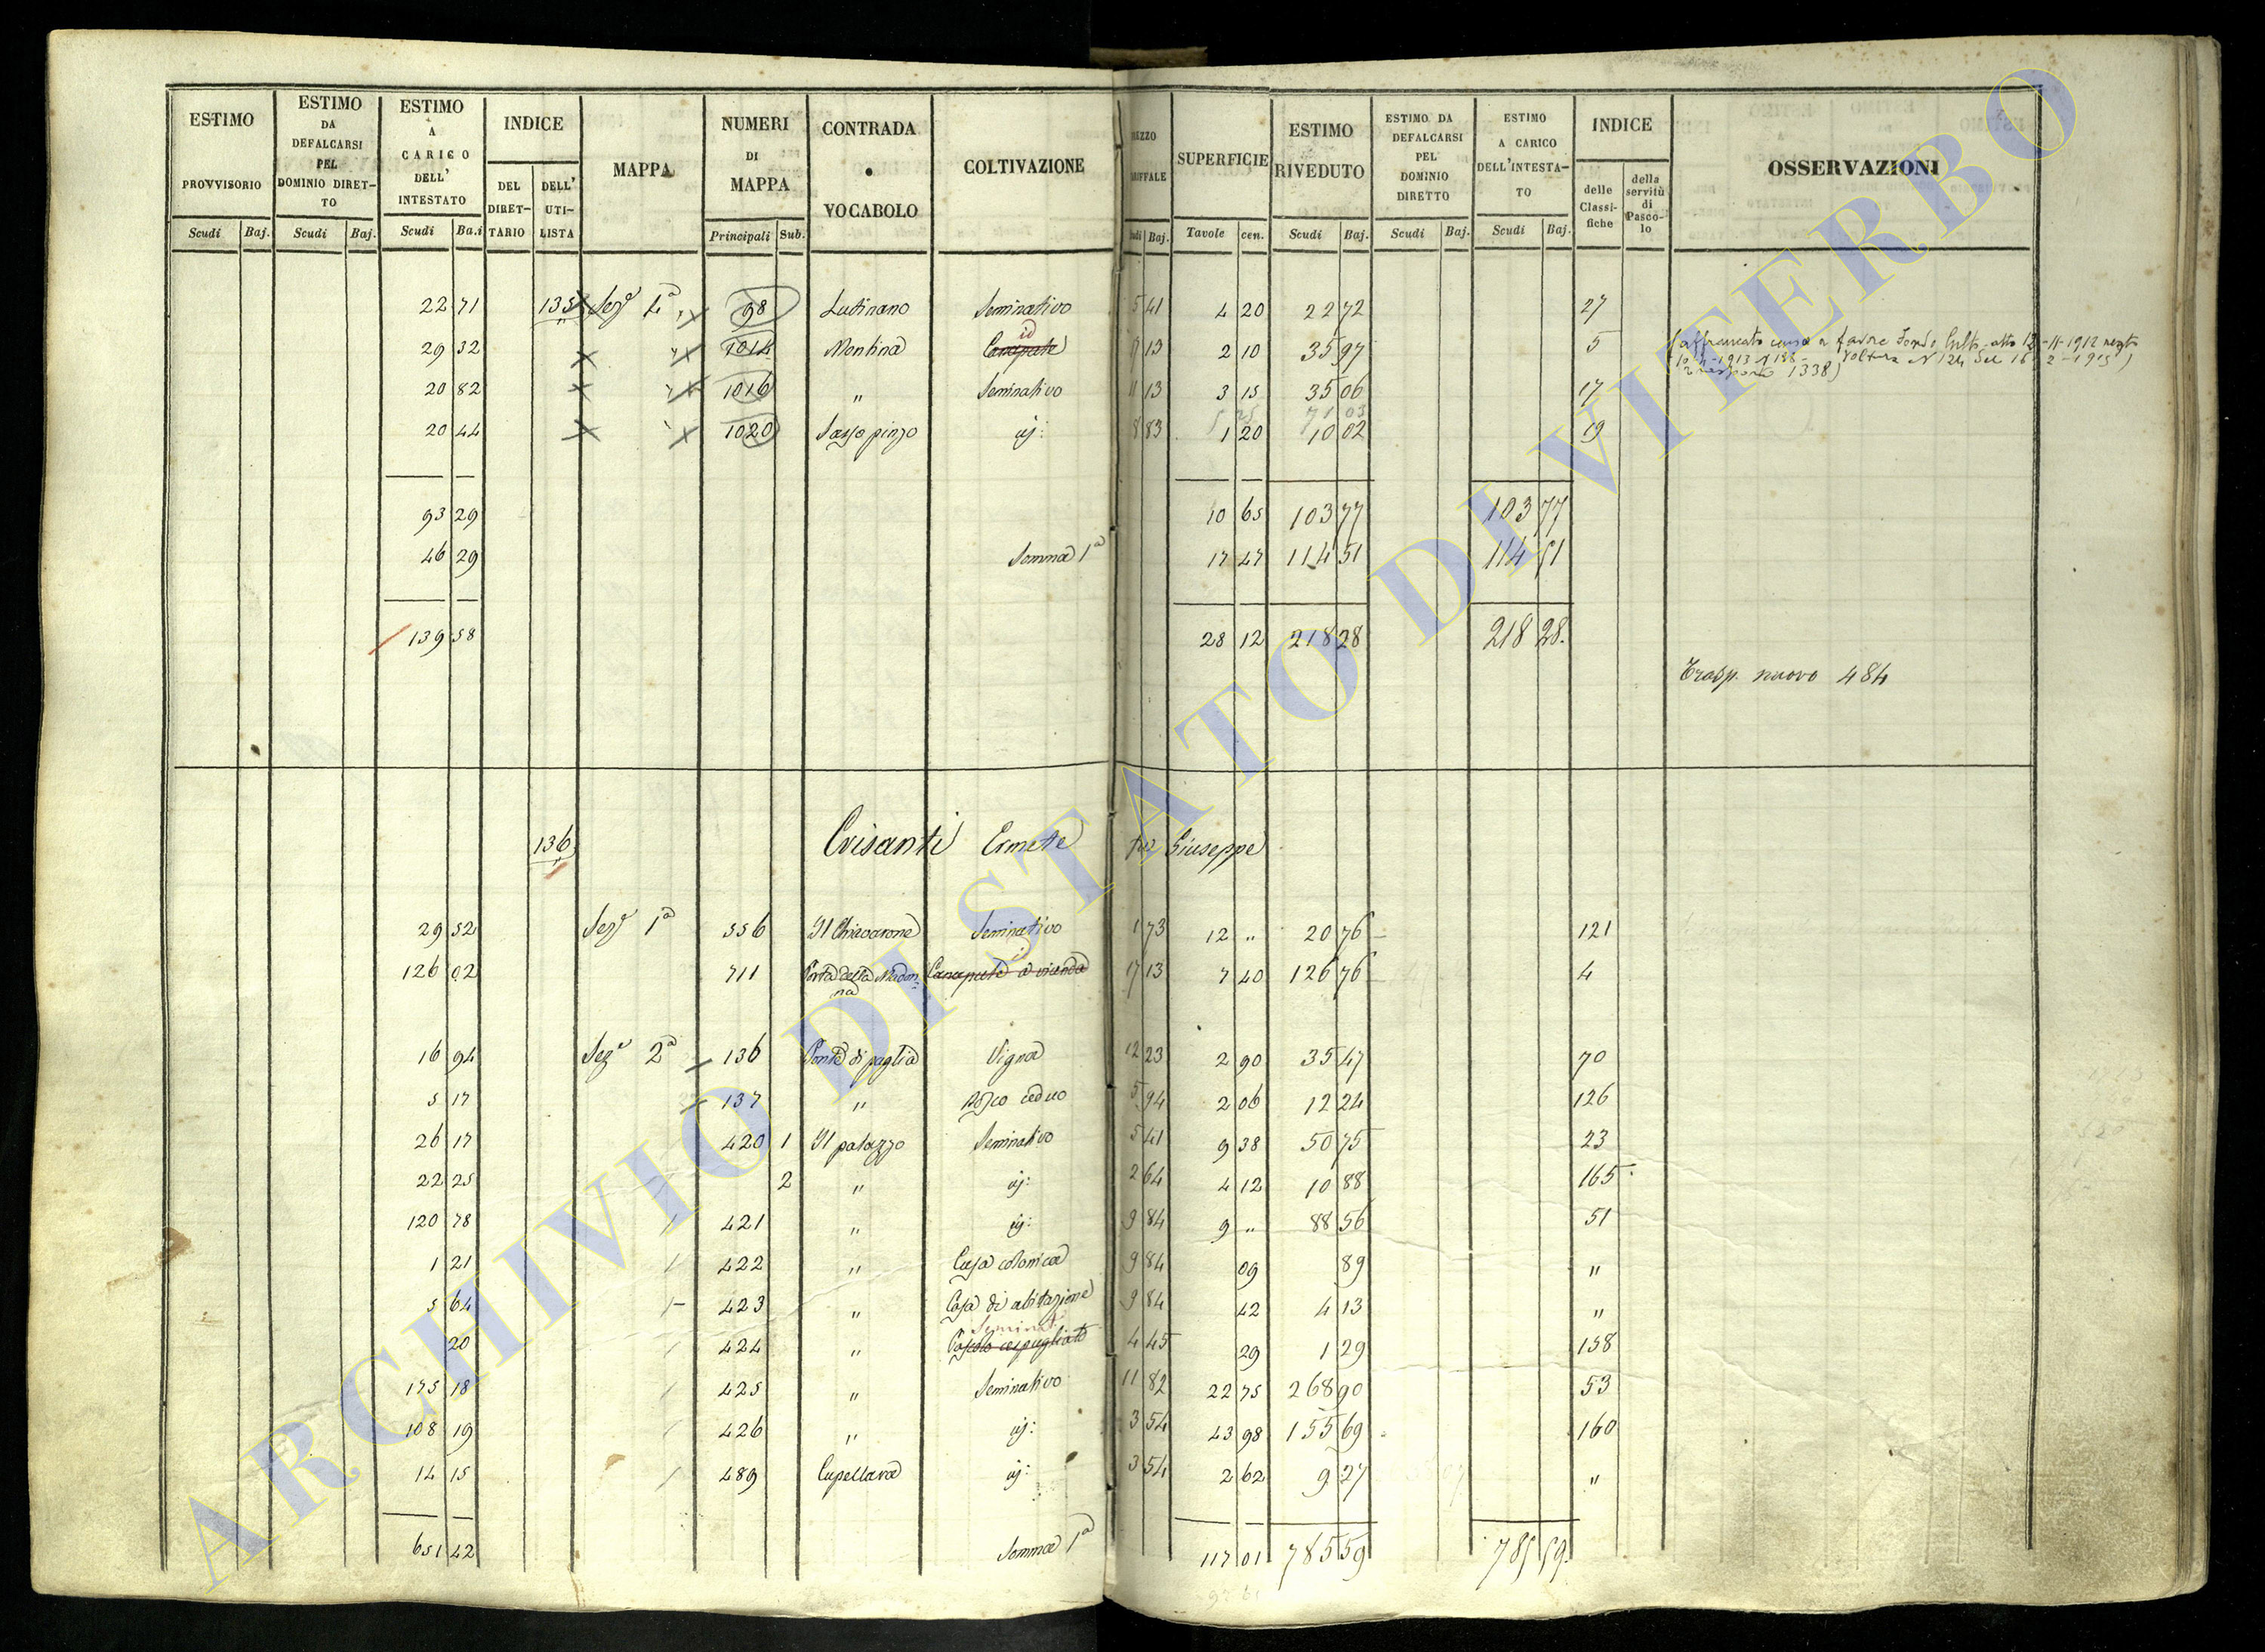 ESTIMO PROVVISORIO | ESTIMO DA DEFALCARSI PEL DOMINIO DIRETTO | ESTIMO A CARICO DELL' INTESTATO | INDICE | MAPPA | NUMERI DI MAPPA | CONTRADA o VOCABOLO | COLTIVAZIONE | SUPERFICIE | ESTIMO RIVEDUTO | ESTIMO DA DEFALCARSI PEL DOMINIO DIRETTO | ESTIMO A CARICO DELL'INTESTATO | INDICE | OSSERVAZIONI
DEL DIRETTARIO | DELL' UTILISTA | delle Classifiche | della servitù di Pascolo
Scudi | Baj. | Scudi | Baj. | Scudi | Ba.i | Principali | Sub. | Baj. | Tavole | cen. | Scudi | Baj. | Scudi | Baj. | Scudi | Baj.
22 71 135 Sezᵉ 4ª 98 Lutinano Seminativo 5 41 4 20 22 72 27
id
29 32 1014 Montina Canapule 9 13 2 10 35 97 5
20 82 1016 " Seminativo 11 13 3 15 35 06 17
5 25 71 03
20 44 1020 Sasso pinzo id: 8 83 1 20 10 02 19
93 29 10 65 103 77 103 77
46 29 Somma 1ª 17 47 114 51 114 51
139 58 28 12 218 28 218 28.
Trasp. nuovo 484
136 Crisanti Ermete fu Giuseppe
29 52 Sezᵉ 1ª 556 Il Chiavarone Seminativo 1 73 12 " 20 76 121
126 02 711 Porta della Madonna Canapule a vicenda 17 13 7 40 126 76 4
16 94 Sezᵉ 2ª 136 Ponte di paglia Vigna 12 23 2 90 35 47 70
5 17 137 " Bosco ceduo 5 94 2 06 12 24 126
26 17 420 1 Il palazzo Seminativo 5 41 9 38 50 75 23
22 25 2 " id: 2 64 4 12 10 88 165
120 78 421 " id: 9 84 9 " 88 56 51
1 21 422 " Casa colonica 9 84 09 89 "
5 64 423 " Casa di abitazione 9 84 42 4 13 "
Seminat.
20 424 " Pascolo cespugliato 4 45 29 1 29 158
175 18 425 " Seminativo 11 82 22 75 268 90 53
108 19 426 " id: 3 54 43 98 155 69 160
14 15 489 Cupellara id: 3 54 2 62 9 27 "
651 42 Somma 1ª 117 01 785 59 785 59.
ARCHIVIO DI STATO DI VITERBO